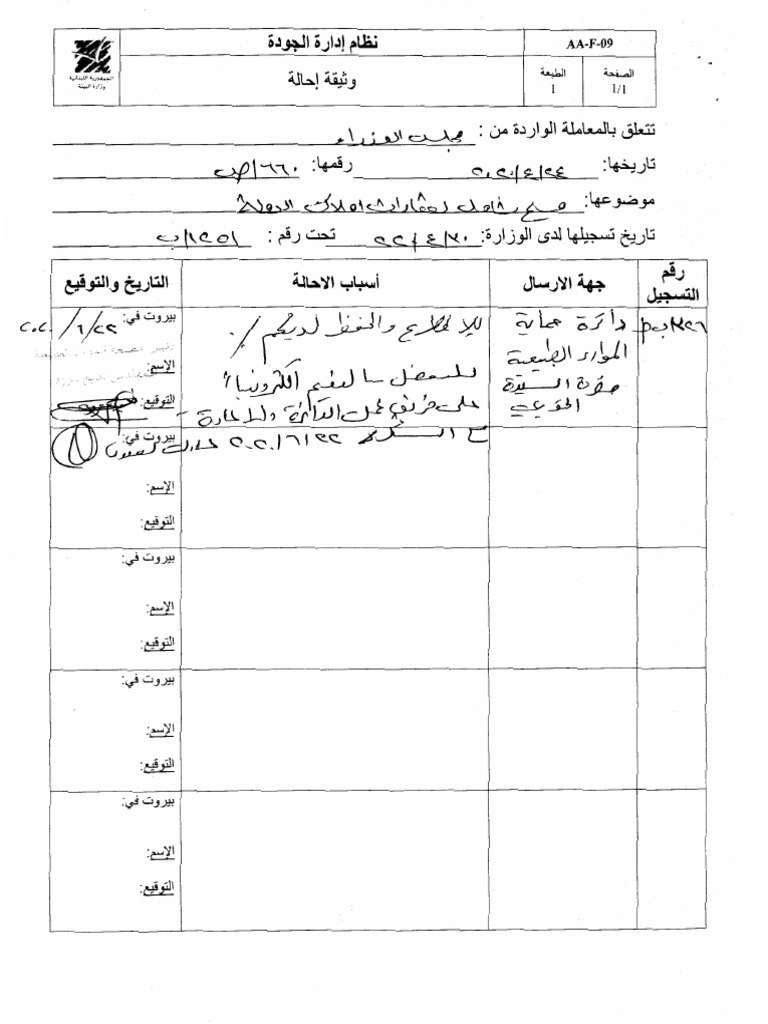 نظام إدارة الجودة
AA-F-09
الجمهورية اللبنانية
وزارة البيئة
وثيقة إحالة
الصفحة
1/1
الطبعة
1
تتعلق بالمعاملة الواردة من : مجلس الوزراء
تاريخها: ٢٠٢٠/٤/٢٤ رقمها: ٦٦٠/ص
موضوعها: مسح شامل لعقارات املاك الدولة
تاريخ تسجيلها لدى الوزارة: ٢٠/٤/٣٠ تحت رقم : ١٢٥١/ب
رقم التسجيل
جهة الارسال
أسباب الاحالة
التاريخ والتوقيع
دائرة حماية
الموارد الطبيعية
السيدة
للاطلاع والحفظ لديكم /.
للتفضل بالتعميم الكترونيا"
على فريق عمل الدائرة وللاعادة
مع الشكر ٢٠٢٠/٦/٢٢
بيروت في: ٢٠٢٠/٦/٢٢
الإسم:
التوقيع:
بيروت في:
الإسم:
التوقيع:
بيروت في:
الإسم:
التوقيع:
بيروت في:
الإسم:
التوقيع:
بيروت في:
الإسم:
التوقيع: